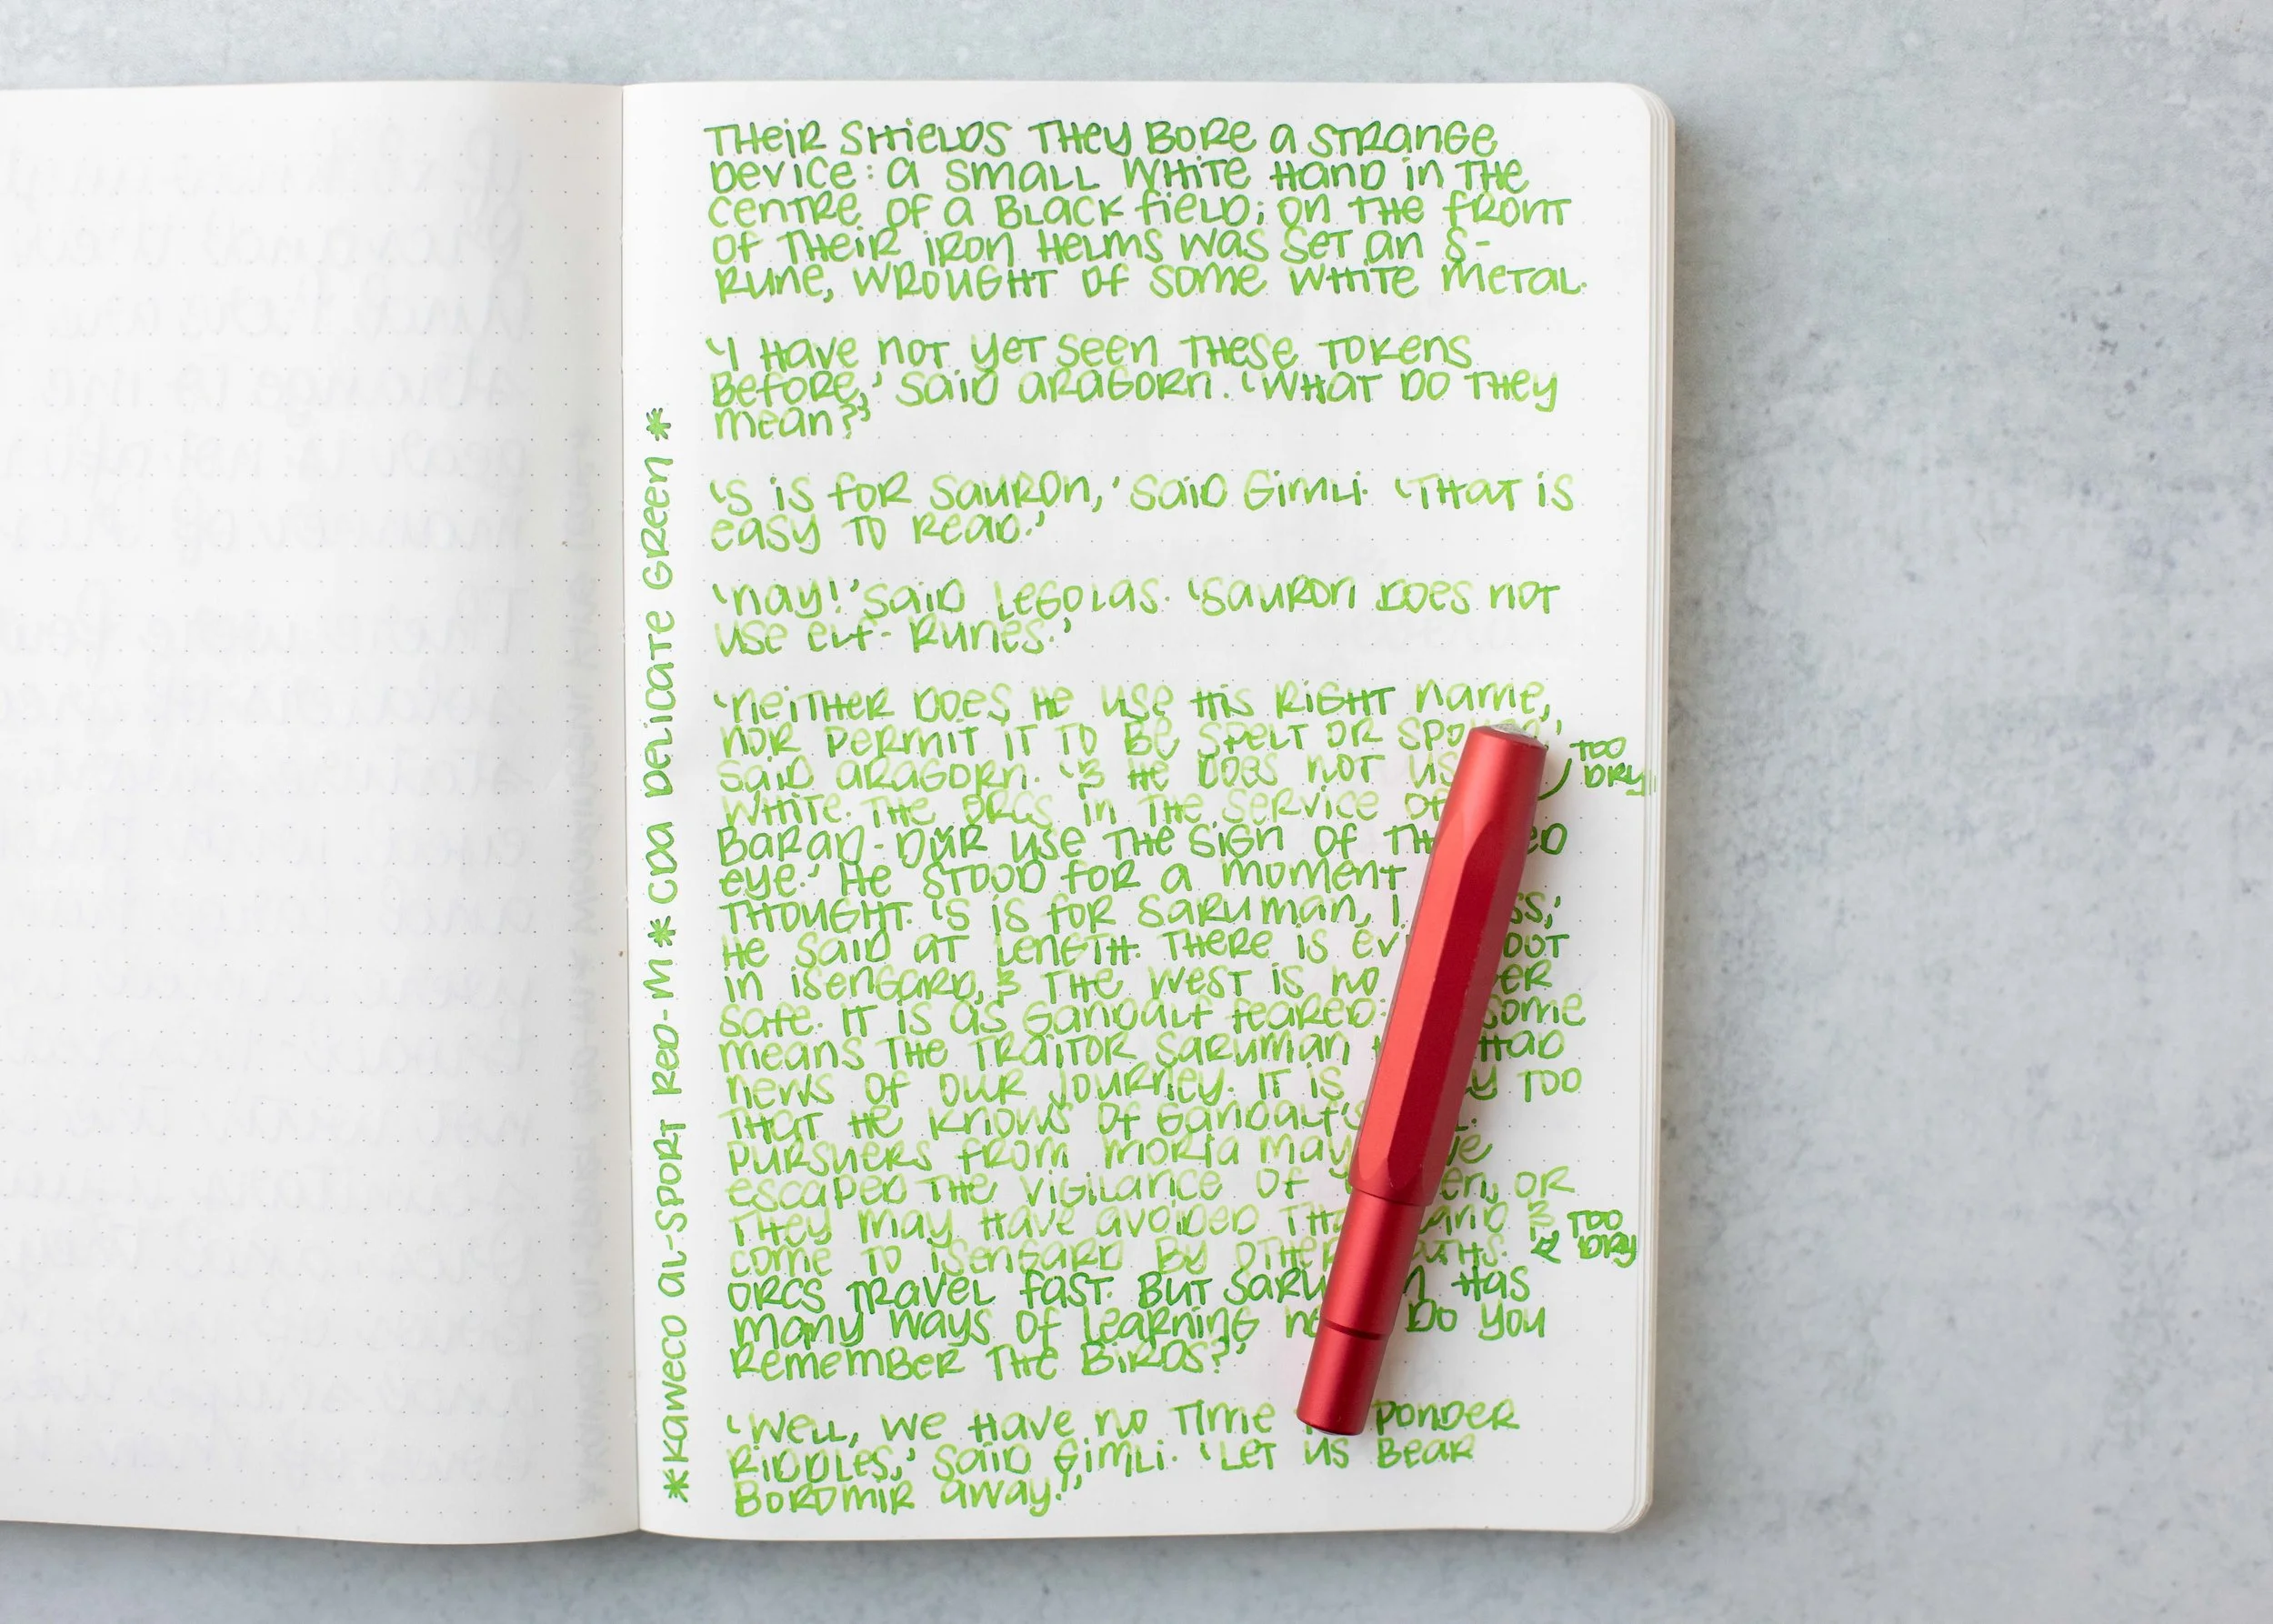 THEIR SHIELDS THEY BORE A STRANGE
DEVICE: A SMALL WHITE HAND IN THE
CENTRE OF A BLACK FIELD; ON THE FRONT
OF THEIR IRON HELMS WAS SET AN S-
RUNE, WROUGHT OF SOME WHITE METAL.
'I HAVE NOT YET SEEN THESE TOKENS
BEFORE,' SAID ARAGORN. 'WHAT DO THEY
MEAN?'
'S IS FOR SAURON,' SAID GIMLI. 'THAT IS
EASY TO READ.'
'NAY!' SAID LEGOLAS. 'SAURON DOES NOT
USE ELF-RUNES.'
'NEITHER DOES HE USE HIS RIGHT NAME,
NOR PERMIT IT TO BE SPELT OR
SAID ARAGORN. '& HE DOES NOT
WHITE. THE ORCS IN THE SERVICE OF
BARAD-DÛR USE THE SIGN OF
EYE.' HE STOOD FOR A MOMENT
THOUGHT. 'S IS FOR SARUMAN, I
HE SAID AT LENGTH. THERE IS
IN ISENGARD, & THE WEST IS NO
SAFE. IT IS AS GANDALF FEARED: SOME
MEANS THE TRAITOR SARUMAN HAD
NEWS OF OUR JOURNEY. IT IS TOO
THAT HE KNOWS OF GANDALF'S
PURSUERS FROM MORIA MAY
ESCAPED THE VIGILANCE OF OR
THEY MAY HAVE AVOIDED &
COME TO ISENGARD BY OTHER
ORCS TRAVEL FAST. BUT HAS
MANY WAYS OF LEARNING DO YOU
REMEMBER THE BIRDS?'
'WELL, WE HAVE NO TIME PONDER
RIDDLES,' SAID GIMLI. 'LET US BEAR
BOROMIR AWAY!'
TOO
DRY
TOO
DRY
*KAWECO AL-SPORT RED-M*CDA DELICATE GREEN*